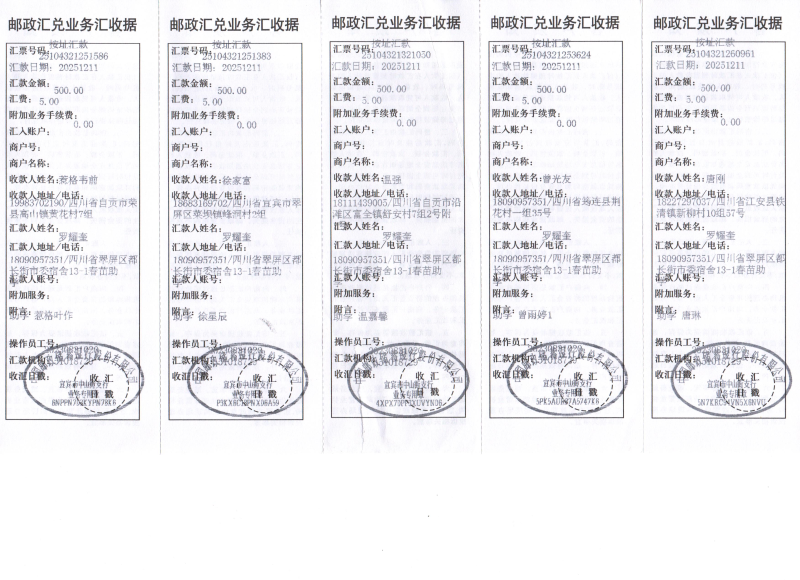 邮政汇兑业务汇收据
按址汇款
汇票号码:
25104321251586
汇款日期: 20251211
汇款金额:
500.00
汇费:
5.00
附加业务手续费:
0.00
汇入账户:
商户号:
商户名称:
收款人姓名:惹格韦前
收款人地址/电话:
19983702190/四川省自贡市荣
县高山镇黄花村7组
汇款人姓名:
罗耀奎
汇款人地址/电话:
18090957351/四川省翠屏区都
长街市委宿舍13-1春苗助
学
汇款人账号:
附加服务:
附言:
助学 惹格叶作
操作员工号:
汇款机构号:
收汇日戳:
收汇
日戳
宜宾市中山街支行
业务专用章
邮政汇兑业务汇收据
按址汇款
汇票号码:
25104321251383
汇款日期: 20251211
汇款金额:
500.00
汇费:
5.00
附加业务手续费:
0.00
汇入账户:
商户号:
商户名称:
收款人姓名:徐家富
收款人地址/电话:
18683189702/四川省宜宾市翠
屏区菜坝镇蜂洞村2组
汇款人姓名:
罗耀奎
汇款人地址/电话:
18090957351/四川省翠屏区都
长街市委宿舍13-1春苗助
学
汇款人账号:
附加服务:
附言:
助学 徐星辰
操作员工号:
汇款机构号:
收汇日戳:
收汇
日戳
宜宾市中山街支行
业务专用章
邮政汇兑业务汇收据
按址汇款
汇票号码:
25104321321050
汇款日期: 20251211
汇款金额:
500.00
汇费:
5.00
附加业务手续费:
0.00
汇入账户:
商户号:
商户名称:
收款人姓名:温强
收款人地址/电话:
18111439005/四川省自贡市沿
滩区富全镇舒安村7组2号附
汇款人姓名:
罗耀奎
汇款人地址/电话:
18090957351/四川省翠屏区都
长街市委宿舍13-1春苗助
学
汇款人账号:
附加服务:
附言:
助学 温嘉馨
操作员工号:
汇款机构号:
收汇日戳:
收汇
日戳
宜宾市中山街支行
业务专用章
邮政汇兑业务汇收据
按址汇款
汇票号码:
25104321253624
汇款日期: 20251211
汇款金额:
500.00
汇费:
5.00
附加业务手续费:
0.00
汇入账户:
商户号:
商户名称:
收款人姓名:曾光友
收款人地址/电话:
18090957351/四川省筠连县荆
花村一组35号
汇款人姓名:
罗耀奎
汇款人地址/电话:
18090957351/四川省翠屏区都
长街市委宿舍13-1春苗助
学
汇款人账号:
附加服务:
附言:
助学 曾雨婷1
操作员工号:
汇款机构号:
收汇日戳:
收汇
日戳
宜宾市中山街支行
业务专用章
邮政汇兑业务汇收据
按址汇款
汇票号码:
25104321260961
汇款日期: 20251211
汇款金额:
500.00
汇费:
5.00
附加业务手续费:
0.00
汇入账户:
商户号:
商户名称:
收款人姓名:唐刚
收款人地址/电话:
18227297037/四川省江安县铁
清镇新柳村10组37号
汇款人姓名:
罗耀奎
汇款人地址/电话:
18090957351/四川省翠屏区都
长街市委宿舍13-1春苗助
学
汇款人账号:
附加服务:
附言:
助学 唐琳
操作员工号:
汇款机构号:
收汇日戳:
收汇
日戳
宜宾市中山街支行
业务专用章